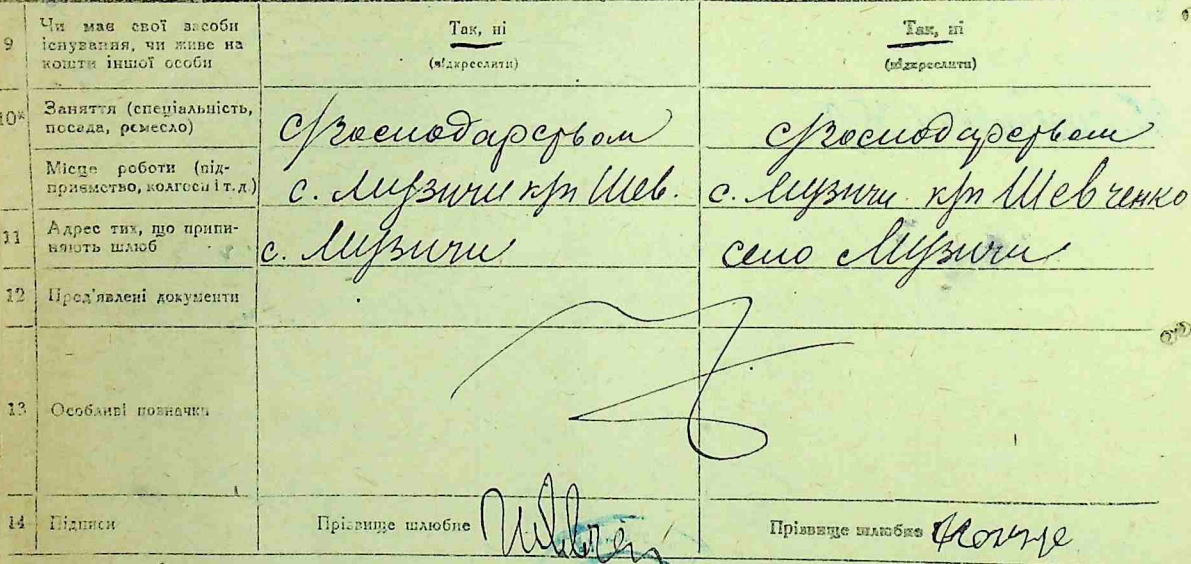 9 Чи має свої засоби існування, чи живе на кошти іншої особи Так, ні (підкреслити) Так, ні (підкреслити)
10* Заняття (спеціальність, посада, ремесло) Господарством Господарством
Місце роботи (підприємство, колгосп і т.д.) с. Музичи к/г Шев. с. Музичи к/г Шевченко
11 Адрес тих, що припиняють шлюб с. Музичи село Музичи
12 Пред'явлені документи
13 Особливі позначки
14 Підписи Прізвище шлюбне Прізвище шлюбне